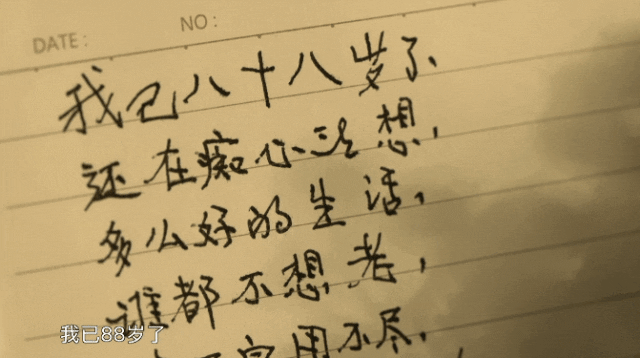 DATE:
NO:
我已八十八岁了、
还在痴心忘想,
多么好的生活,
谁都不想老,
用不尽,
我已88岁了